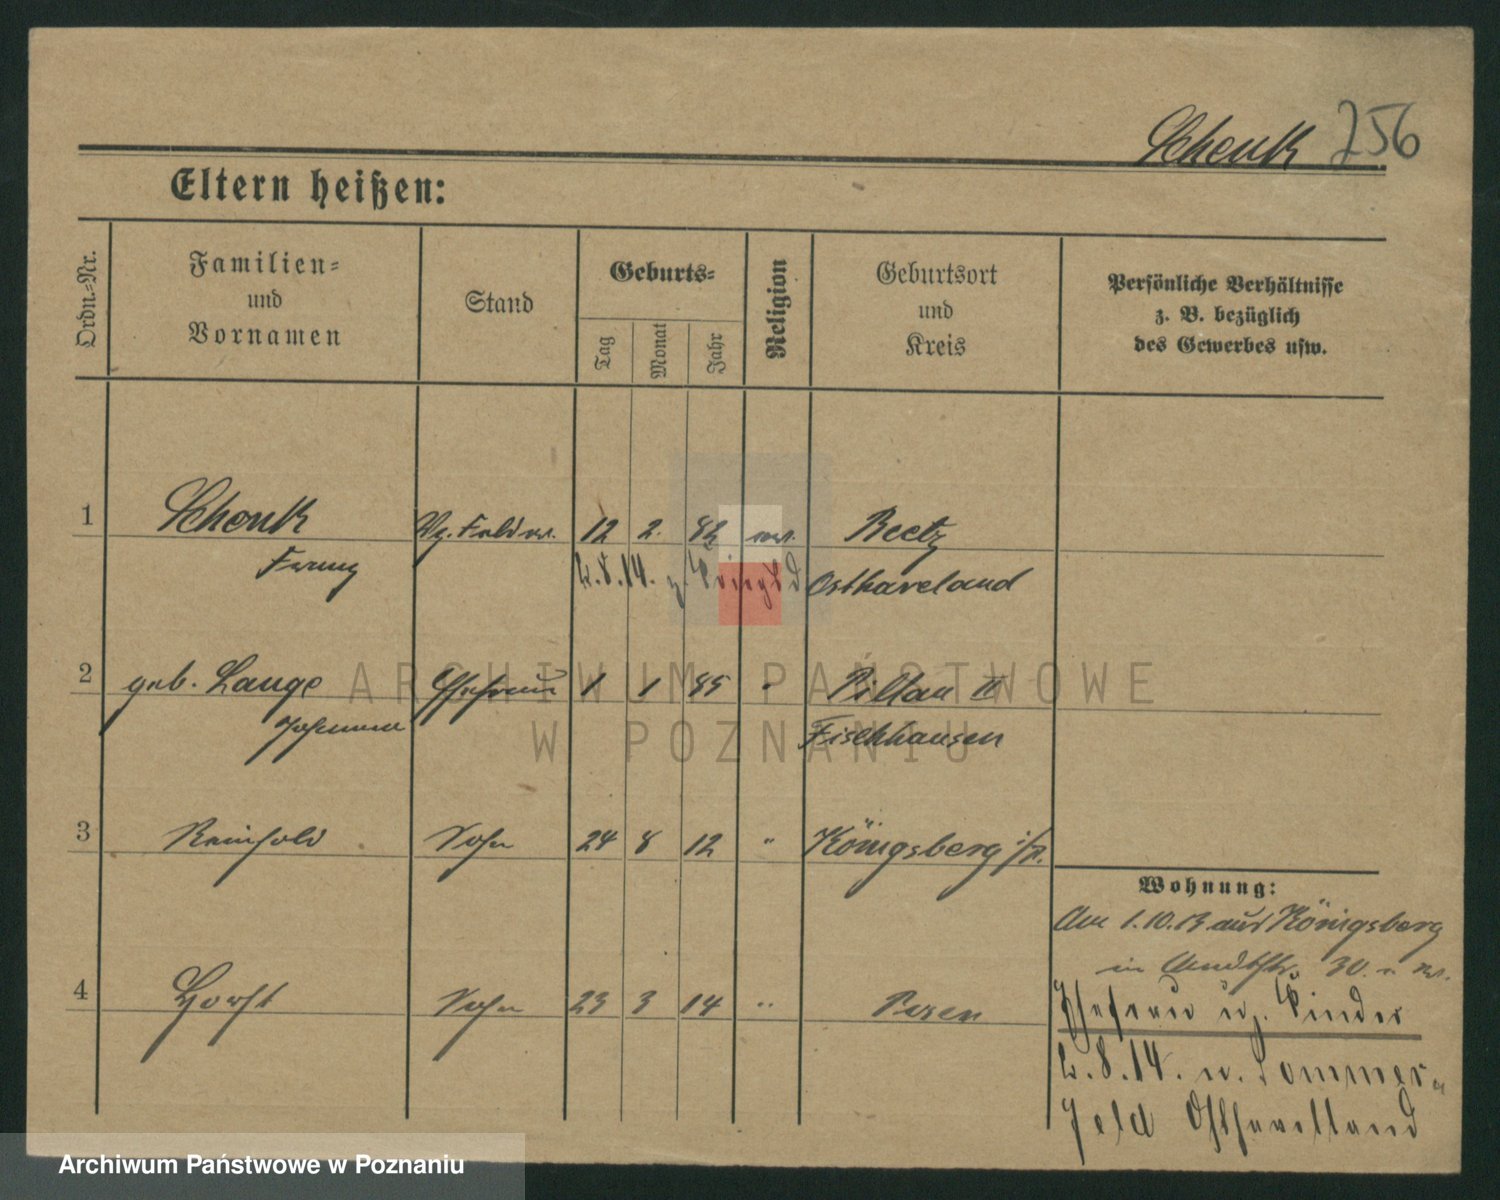 Schenk 256
Eltern heißen:
Ordn.-Nr.
Familien-
und
Vornamen
Stand
Geburts-
Tag
Monat
Jahr
Religion
Geburtsort
und
Kreis
Persönliche Verhältnisse
z. B. bezüglich
des Gewerbes usw.
1 Schenk 12 2. 82 ev. Beetz
Franz 2.8.14. Osthaveland
2 geb. Lange Ehefrau 1 1 85 " Pillau II
Johanna Fischhausen
3 Reinhold Sohn 24 8 12 " Königsberg i/Pr.
Wohnung:
Am 1.10.13 aus Königsberg
in 30
4 Horst Sohn 23 3 14 " Posen
Ehefrau u. Kinder
2.8.14. n. Sommer-
feld Osthavelland
ARCHIWUM PAŃSTWOWE
W POZNANIU
Archiwum Państwowe w Poznaniu